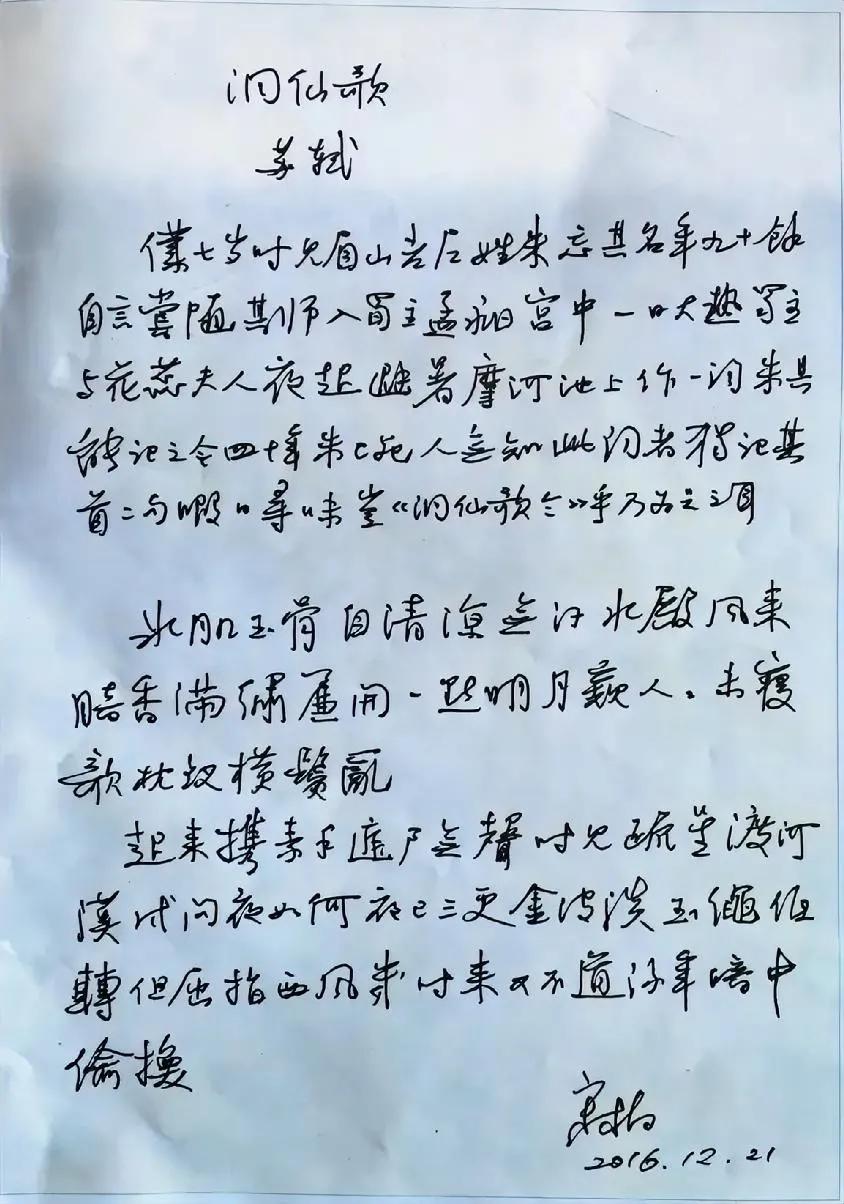 洞仙歌
苏轼
僕七岁时见眉山老尼姓朱忘其名年九十餘
自言嘗随其师入蜀主孟昶宫中一日大热蜀主
与花蕊夫人夜起避暑摩河池上作一词朱具
能记之今四十年朱已死人無知此词者獨记其
首二句暇日尋味豈《洞仙歌令》乎乃为足之耳
冰肌玉骨自清凉無汗水殿风来
暗香满绣簾開一點明月窥人。未寝
欹枕钗横鬢亂
起来攜素手庭户無聲时见疏星渡河
漢试问夜如何夜已三更金波淡玉繩低
轉但屈指西风幾时来又不道流年暗中
偷換
2016.12.21